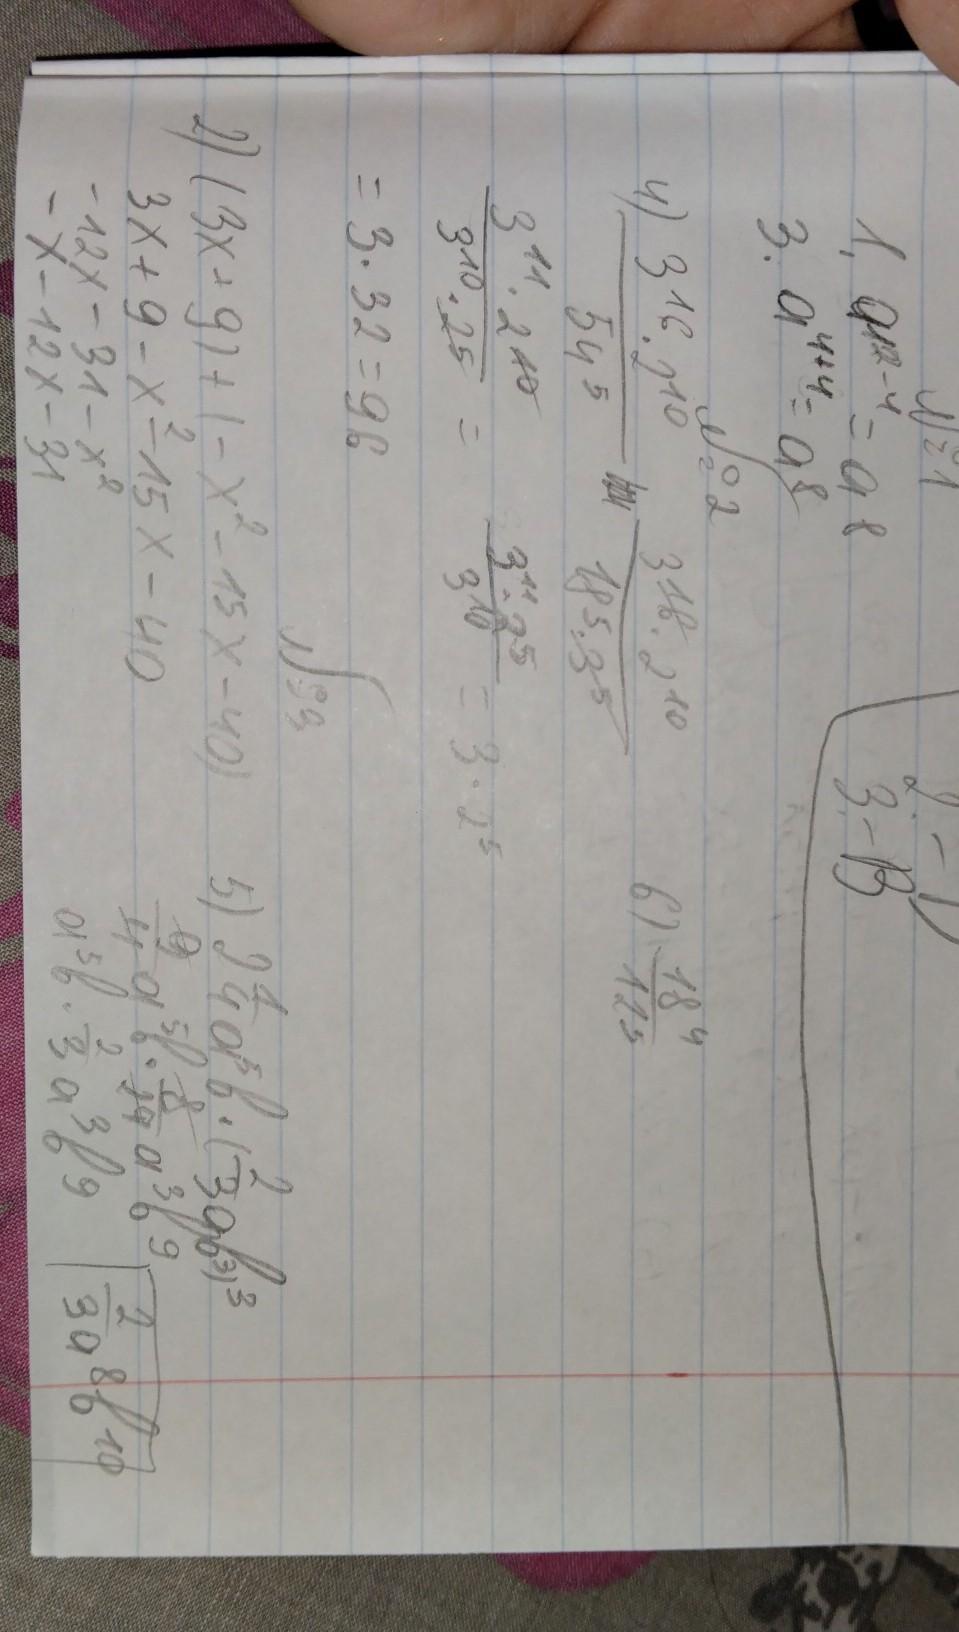 №1
1. a¹²⁻⁴ = a⁸
3. a⁴⁺⁴ = a⁸
2. – 
3. – В
№2
4) 3¹⁶ · 2¹⁰ / 54⁵
3¹⁶ · 2¹⁰ / 18⁵ · 3⁵
3¹¹ · 2¹⁰ / 3¹⁰ · 2⁵ =
3¹¹ · 2⁵ / 3¹⁰ = 3 · 2⁵
= 3 · 32 = 96
6) 18⁴ / 12⁵
№3
2) (3x + 9) + (– x² – 15x – 40)
3x + 9 – x² – 15x – 40
– 12x – 31 – x²
– x – 12x – 31
5) 2 1/4 a⁵b · (2/3 ab³)³
9/4 a⁵b · 8/27 a³b⁹
a⁵b · 2/3 a³b⁹
2/3 a⁸b¹⁰